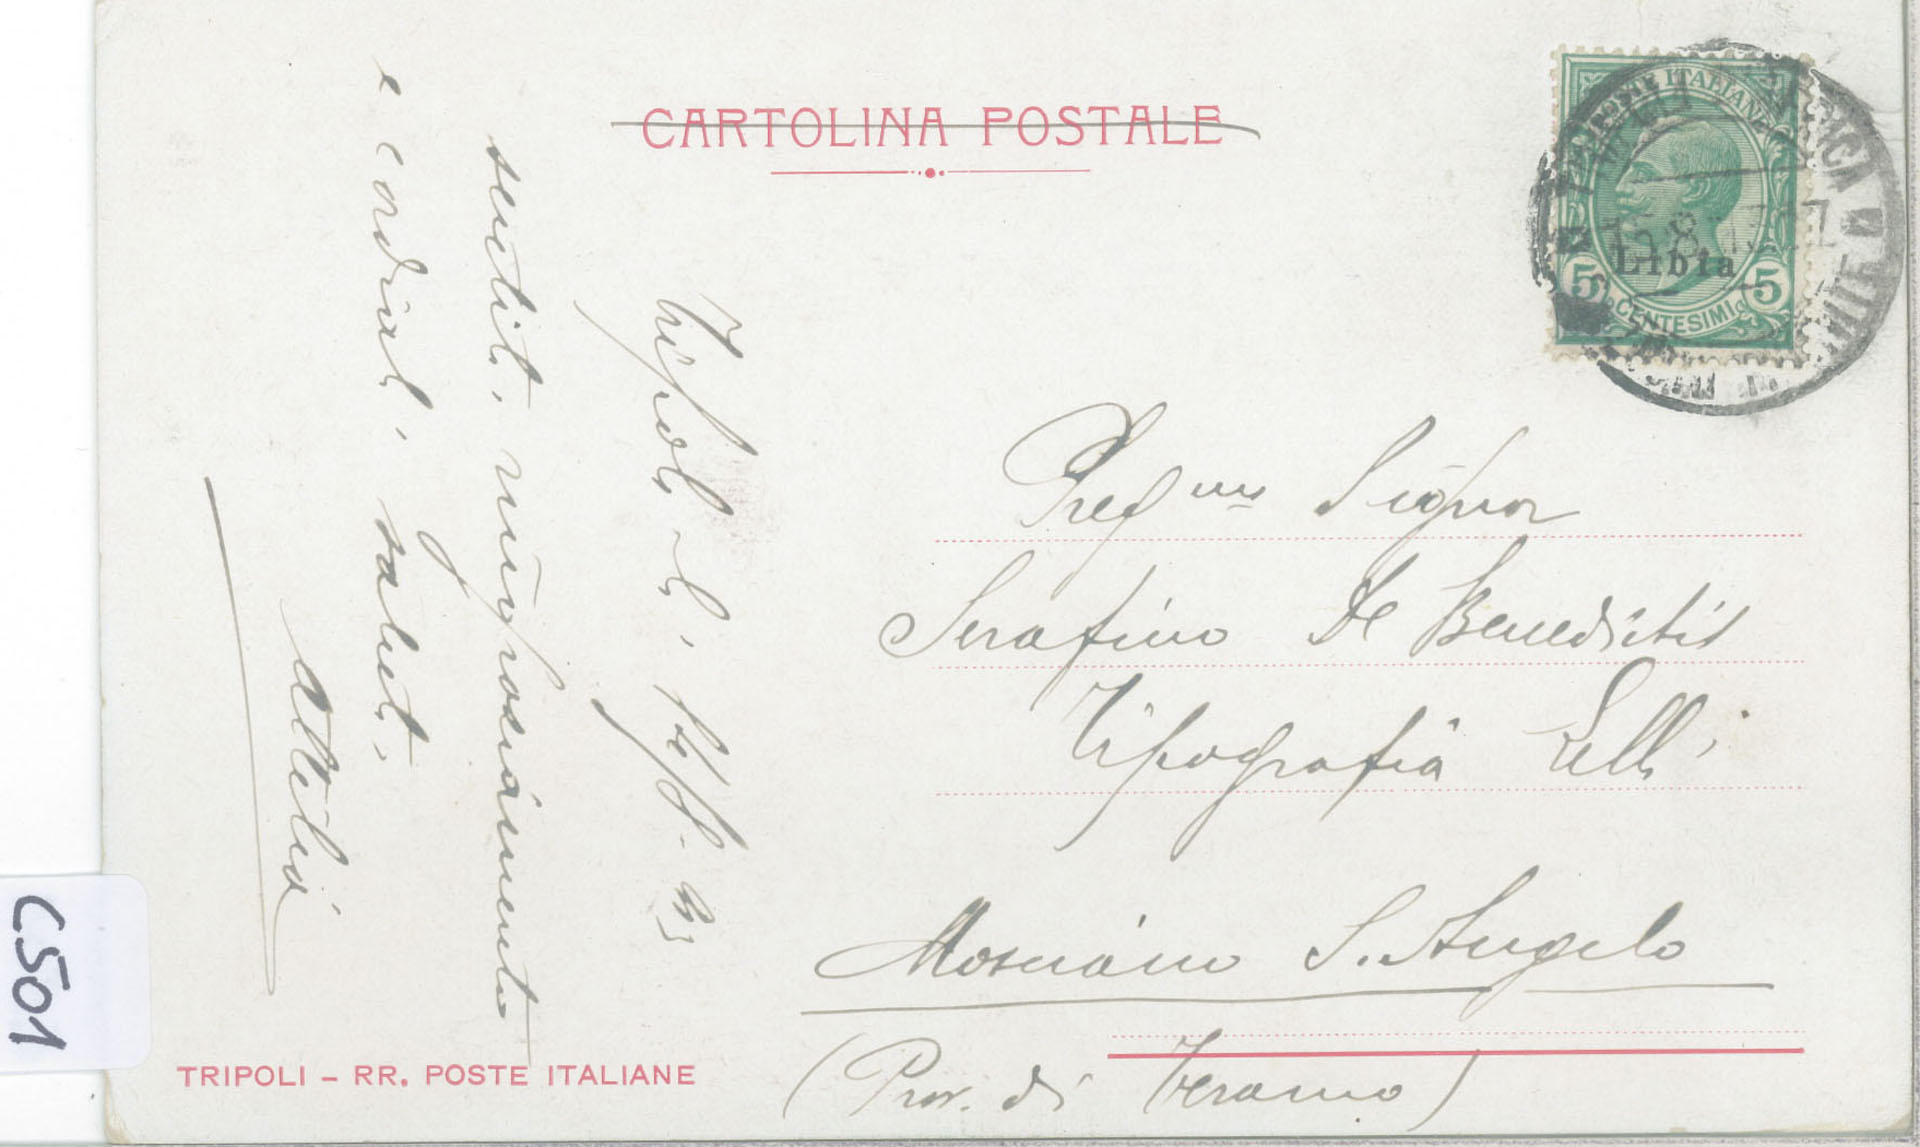 CARTOLINA POSTALE
POSTE ITALIANE
Libia
5 5
CENTESIMI
Tripoli - li,
sentiti, ringraziamento
e cordiali, saluti,
Attilio
Preg mo Signor
Serafino De Benedictis
Tipografia
Mosciano S. Angelo
(Prov. di Teramo)
TRIPOLI – RR. POSTE ITALIANE
C501